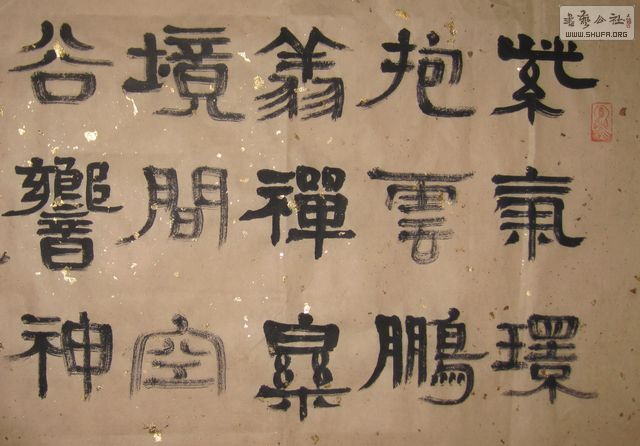 紫氣環
抱雲鵬
翁禪
境間空
谷響神
書藝公社
WWW.SHUFA.ORG